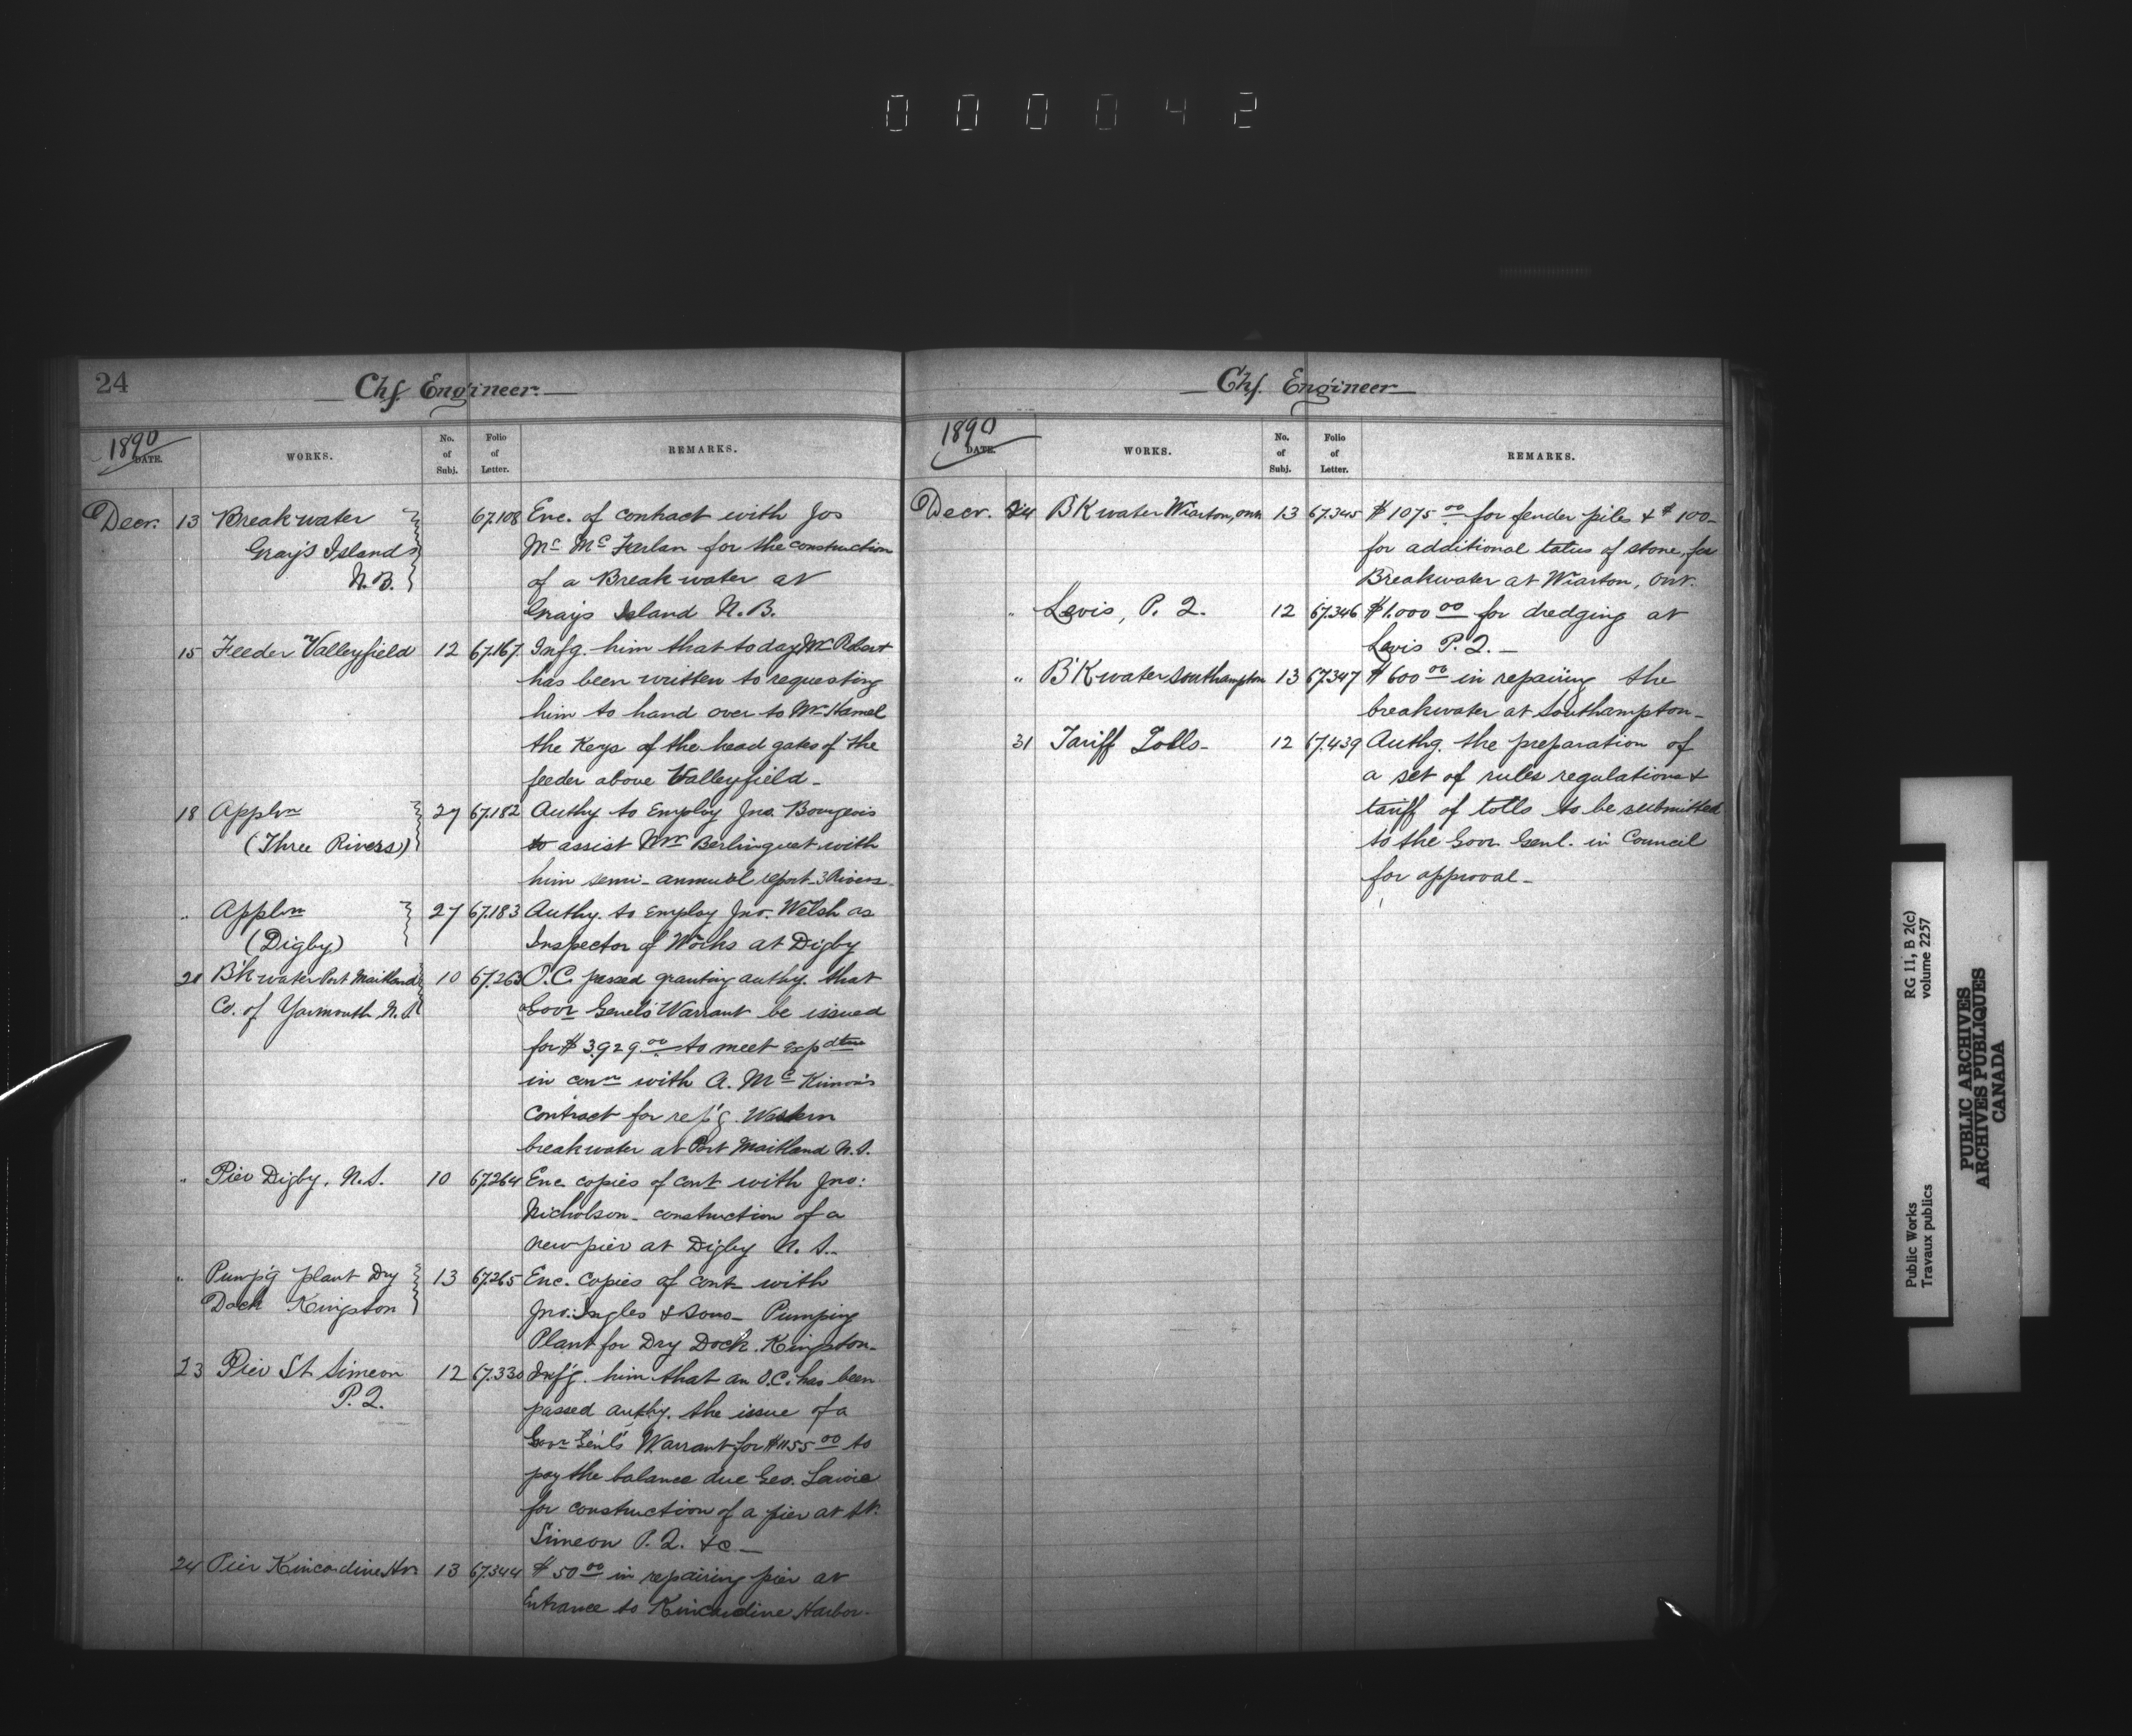 000042
24
Chf. Engineer.
1890
DATE.
WORKS.
No. of Subj.
Folio of Letter.
REMARKS.
Decr. 13 Breakwater 67.108 Enc. of contract with Jos
Grays Islands Mc McFarlan for the construction
N.B. of a Breakwater at
Grays Island N.B.
15 Feeder Valleyfield 12 67.167 Infg. him that today Mr Robert
has been written to requesting
him to hand over to Mr Hamel
the Keys of the head gates of the
feeder above Valleyfield-
18 Appln 27 67.182 Authy to Employ Jno. Bourgeois
(Three Rivers) to assist Mr Berlinguet with
him semi-annual report 3 Rivers-
" Appln 27 67.183 Authy. to Employ Jno. Welsh as
(Digby) Inspector of Works at Digby
20 B'kwater Port Maitland 10 67.263 O.C. passed granting authy. that
Co. of Yarmouth N.S Govr Genel's Warrant be issued
for $3,929 00 to meet expdture
in conn with A. Mc Kinnon's
contract for rep'g. Western
breakwater at Port Maitland N.S.
" Pier Digby, N.S. 10 67264 Enc. copies of cont with Jno:
Nicholson- construction of a
new pier at Digby N.S.-
" Pump'g plant Dry 13 67265 Enc. copies of cont with
Dock Kingston Jno. Ingles & Sons- Pumping
Plant for Dry Dock. Kingston-
23 Pier St Simeon 12 67.330 Inf'g. him that an O.C. has been
P.Q. passed authy. the issue of a
Govr Gen'l's Warrant for $1155 00 to
pay the balance due Geo. Lavoie
for construction of a pier at St.
Simeon P.Q. &c-
24 Pier Kincardine Hr. 13 67.344 $50 00 in repairing pier at
Entrance to Kincardine Harbor.
Chf. Engineer
1890
DATE.
WORKS.
No. of Subj.
Folio of Letter.
REMARKS.
Decr. 24 B'Kwater Wiarton, Ont 13 67.345 $1075 00 for fender piles & $100-
for additional talus of stone, for
Breakwater at Wiarton, Ont.
" Levis, P.Q. 12 67.346 $1.000 00 for dredging at
Levis P.Q.-
" B'Kwater Southampton 13 67.347 $600 00 in repairing the
breakwater at Southampton-
31 Tariff Tolls- 12 67.439 Authg. the preparation of
a set of rules regulations &
tariff of tolls to be submitted
to the Govr. Genl. in Council
for approval-
Public Works
Travaux publics
RG 11, B 2(c)
volume 2257
PUBLIC ARCHIVES
ARCHIVES PUBLIQUES
CANADA